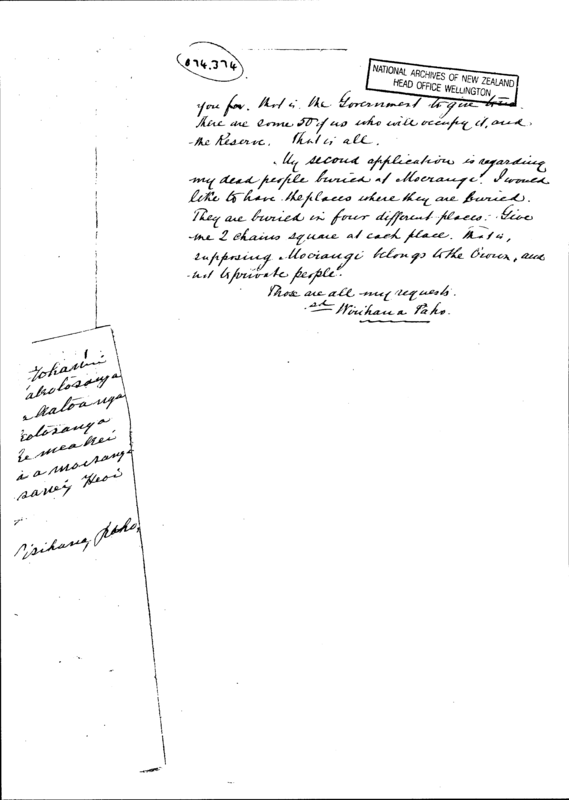 074.374
NATIONAL ARCHIVES OF NEW ZEALAND
HEAD OFFICE WELLINGTON
you for. That is the Government to give
There are some 50 of us who will occupy it, and
the Reserve. That is all.
My second application is regarding
my dead people buried at Moerangi. I would
like to have the places where they are buried.
They are buried in four different places. Give
me 2 chains square at each place. That is,
supposing Moerangi belongs to the Crown, and
not to private people.
Those are all my requests.
sd Wirihana Paho.
katoa nga
te mea kei
a moeranga
Heoi